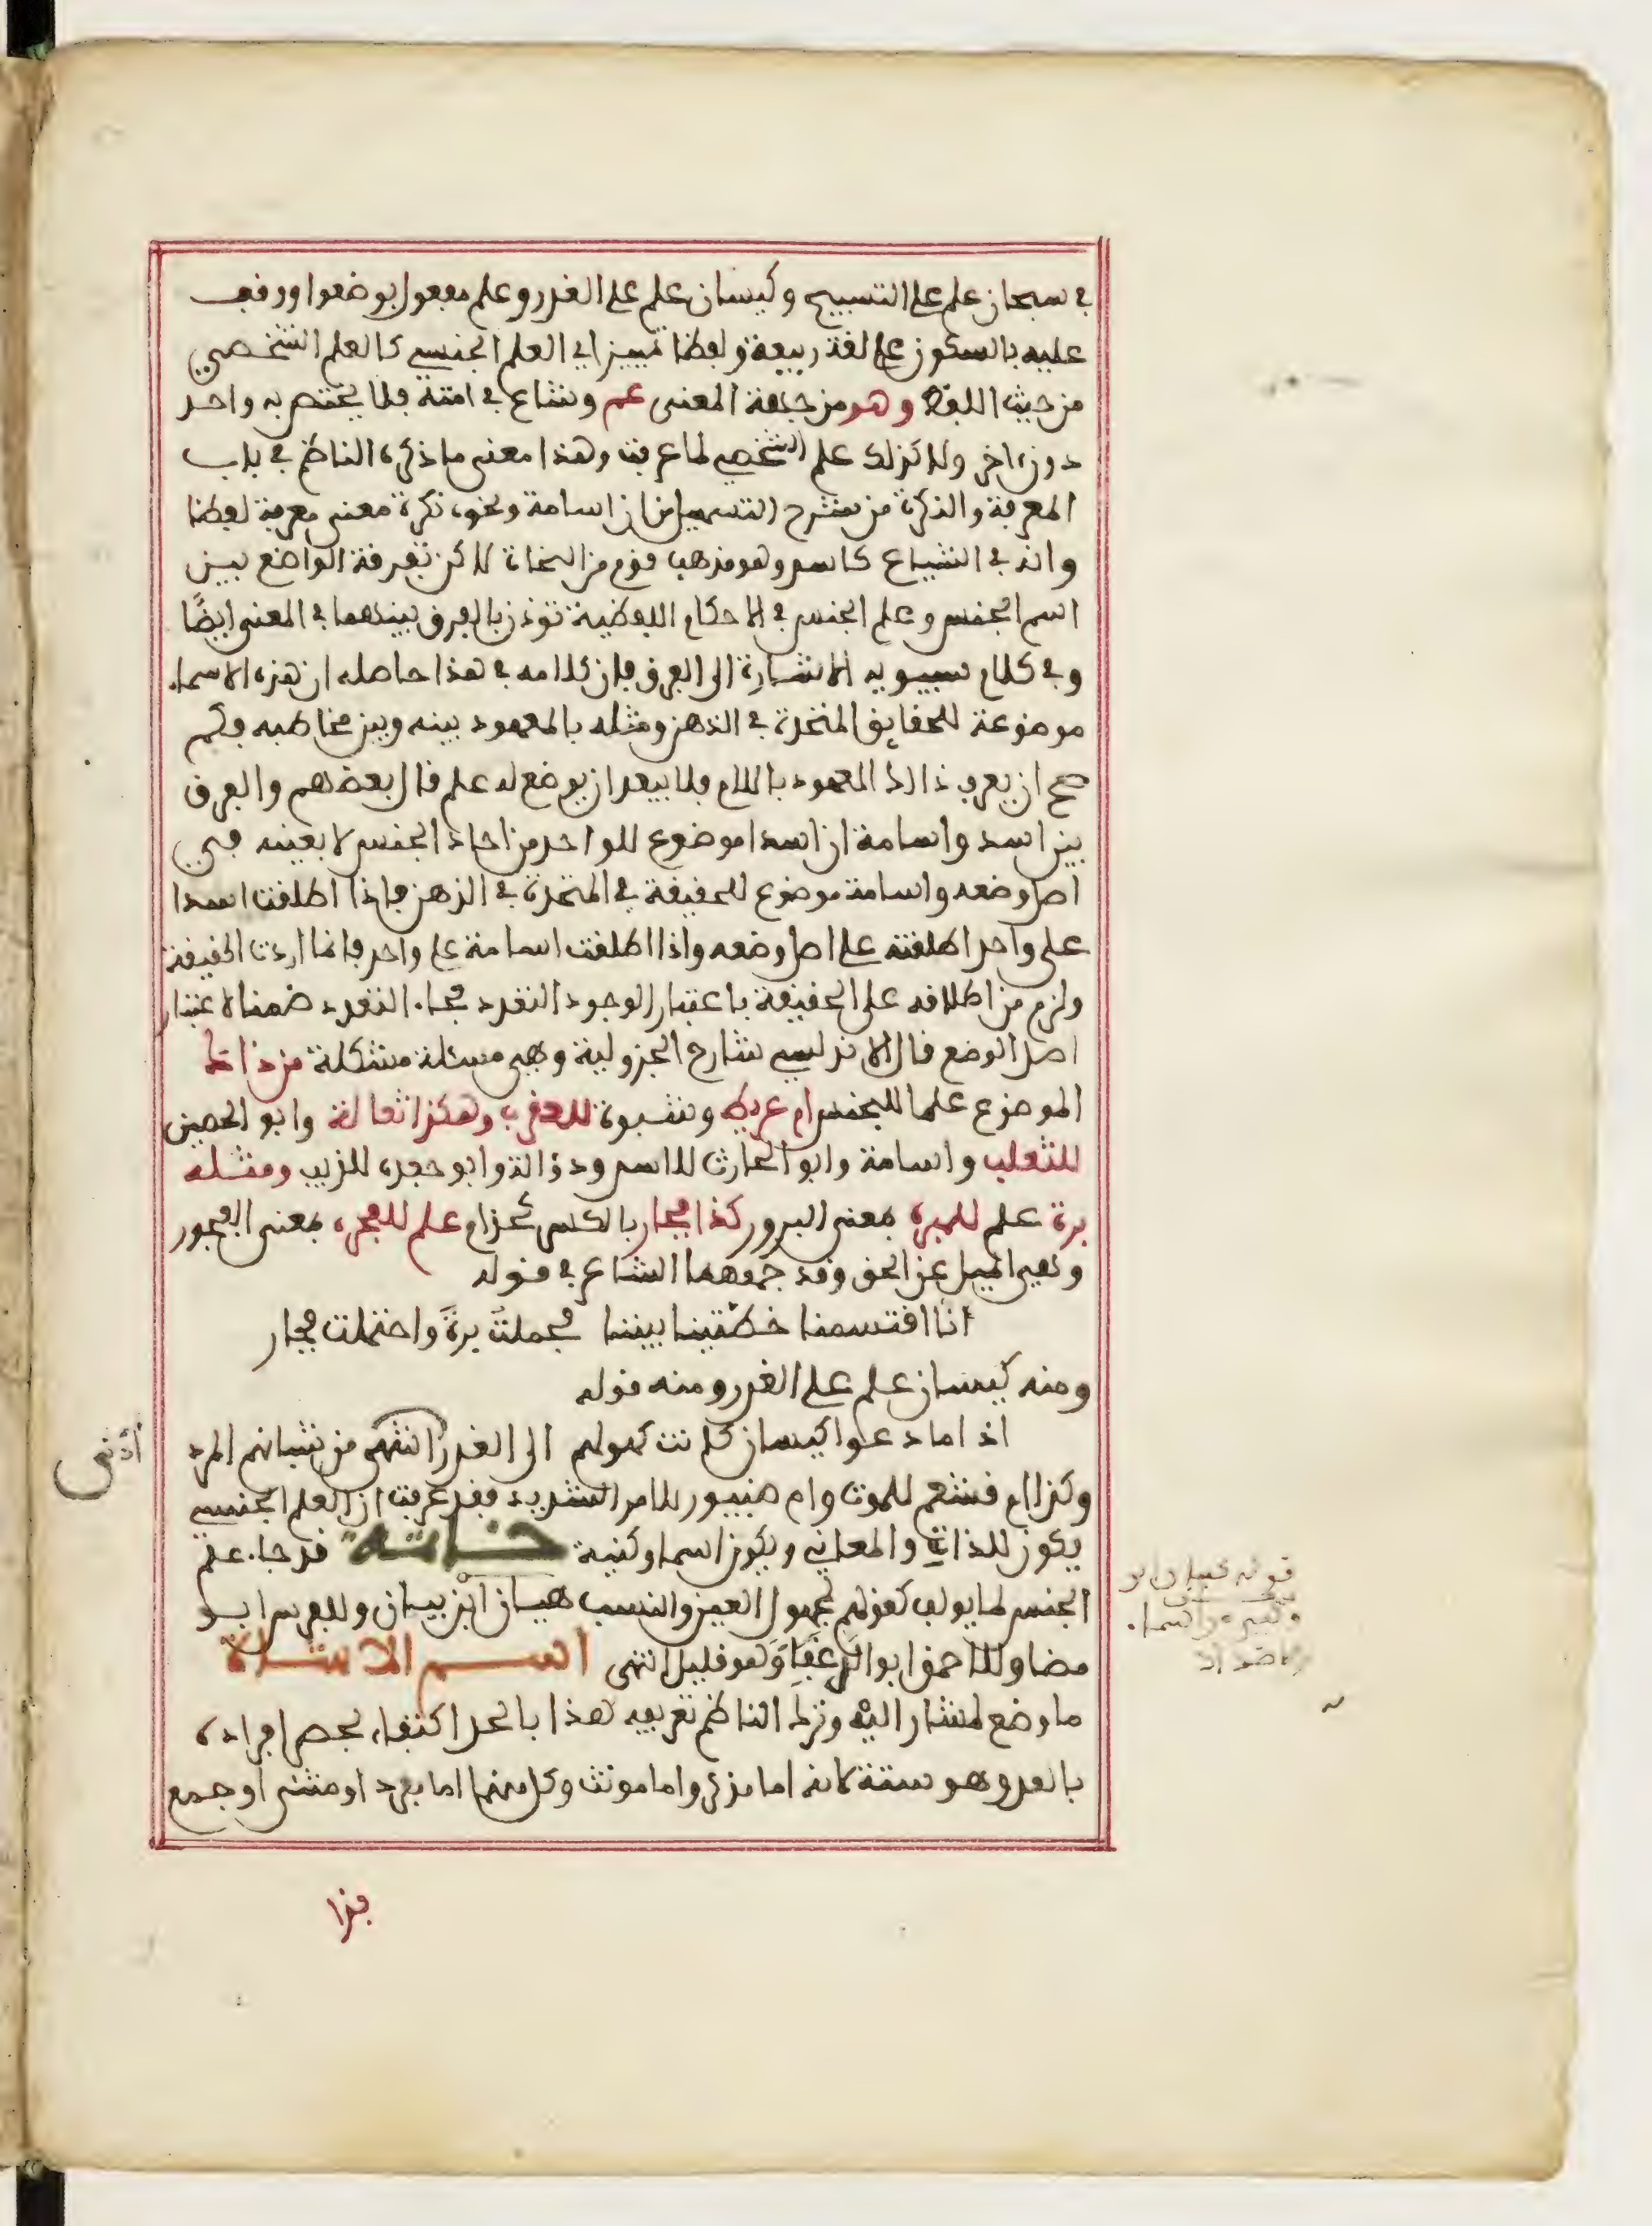 في سبحان علم على التسبيح وكيسان علم على الغدر وعلم مفعول بوضعوا ووقف
عليه بالسكون على لغة ربيعة ولفظا تمييز اي العلم الجنسي كالعلم الشخصي
من حيث اللفظ وهو من جهة المعنى عم وشاع في امته فلا يختص به واحد
دون اخر ولا كذلك علم الشخص لما عرفت وهذا معنى ما ذكره الناظم في باب
المعرفة والنكرة من شرح التسهيل من ان اسامة ونحوه نكرة معنى معرفة لفظا
وانه في الشياع كاسد وهو مذهب قوم من النحاة لاكن تفرقة الواضع بين
اسم الجنس وعلم الجنس في الاحكام اللفظية توذن بالفرق بينهما في المعنى ايضًا
وفي كلام سيبويه الاشارة الى الفرق فان كلامه في هذا حاصله ان هذه الاسماء
موضوعة للحقايق المتحدة في الذهن ومثله بالمعهود بينه وبين مخاطبه فكم
صح ان يعرف ذالك المعهود باللام فلا يبعد ان يوضع له علم قال بعضهم والفرق
بين اسد واسامة ان اسدا موضوع للواحد من احاد الجنس لا بعينه في
اصل وضعه واسامة موضوع للحقيقة في المتحدة في الذهن فاذا اطلقت اسدا
على واحد اطلقته على اصل وضعه واذا اطلقت اسامة على واحد فانما اردت الحقيقة
ولزم من اطلاقه على الحقيقة باعتبار الوجود التعدد فجاء التعدد ضمنا لا عتبار
اصل الوضع قال الاندلسي شارح الجزولية وهي مسئلة مشكلة من ذاك
الموضوع علما للجنس ام عريط وشبوة للعقرب وهكذا ثعالة وابو الحصين
للثعلب واسامة وابو الحارث للاسد وذؤالة وابو جعدة للذيب ومثله
برة علم للمبره بمعنى البرور كذا فجار بالكسر كحذام علم للفجره بمعنى الفجور
وهي الميل عن الحق وقد جمعهما الشاعر في قوله
انا اقتسمنا خطتينا بيننا فحملت برة واحتملت فجار
ومنه كيسان علم على الغدر ومنه قوله
اذا ما دعوا كيسان كانت كهولهم الى الغدر انتهى من شبانهم المرد
أدْنى
وكذا ام قشعم للموت وام صبور للامر الشديد فقد عرفت ان العلم الجنسي
يكون للذات والمعاني ويكون اسما وكنية خاتمة قد جاء علم
الجنس لما يولف كقولهم لمجهول العين والنسب هيان ابن بيان وللفرس ابو
مضا وللاحمق ابو الدغفاء وهو قليل انتهى اسم الاشارة
ما وضع لمشار اليه وترك الناظم تعريفه لهذا بالحد اكتفاء بحصر افراده
بالعد وهو ستة لانه اما مذكر واما مونث وكل منهما اما مفرد او مثنى او جمع
فهذا